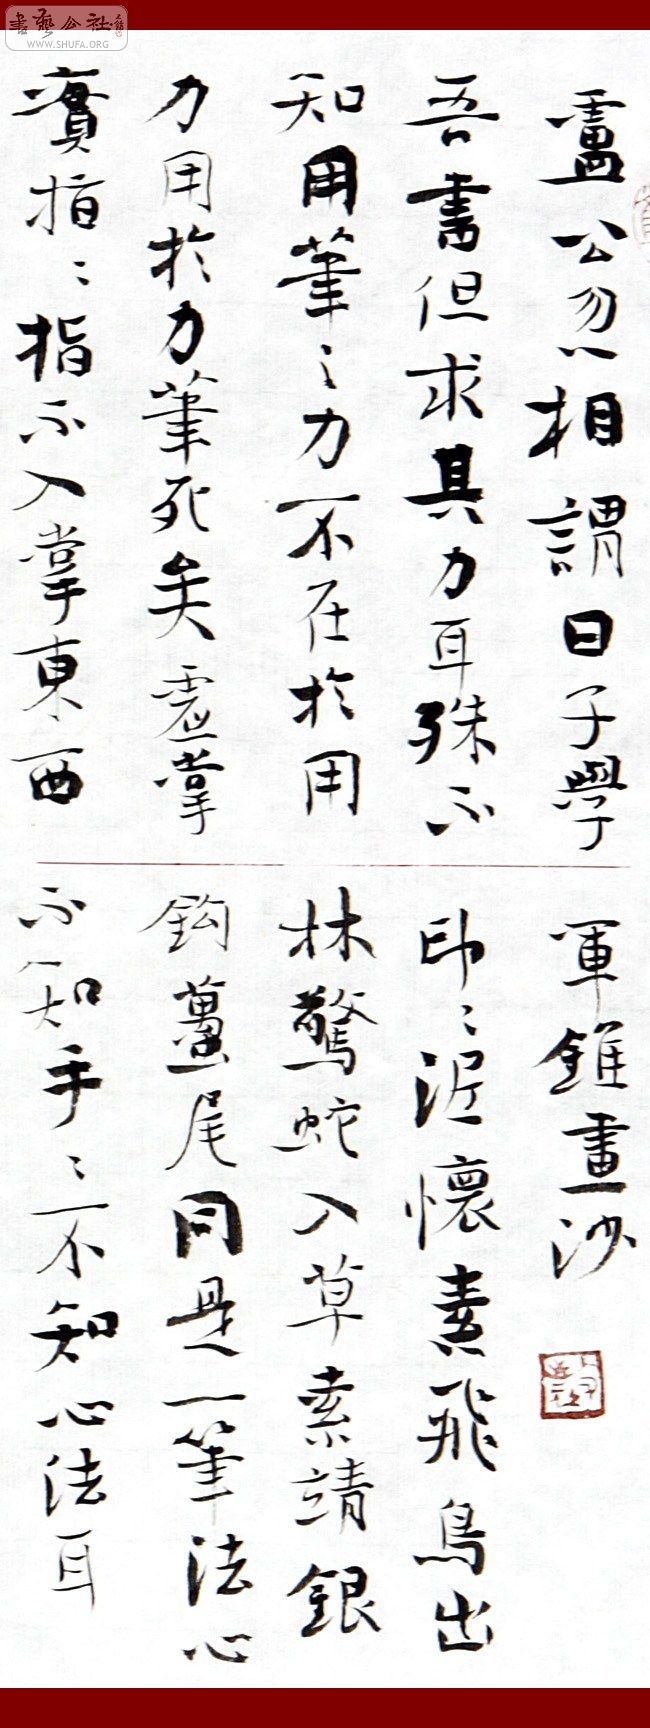 書藝公社
WWW.SHUFA.ORG
盧公忽相謂曰子學
吾書但求其力耳殊不
知用筆之力不在於用
力用於力筆死矣虛掌
實指々指不入掌東西
軍錐畫沙
印々泥懷素飛鳥出
林驚蛇入草索靖銀
鈎蠆尾同是一筆法心
不知手々不知心法耳